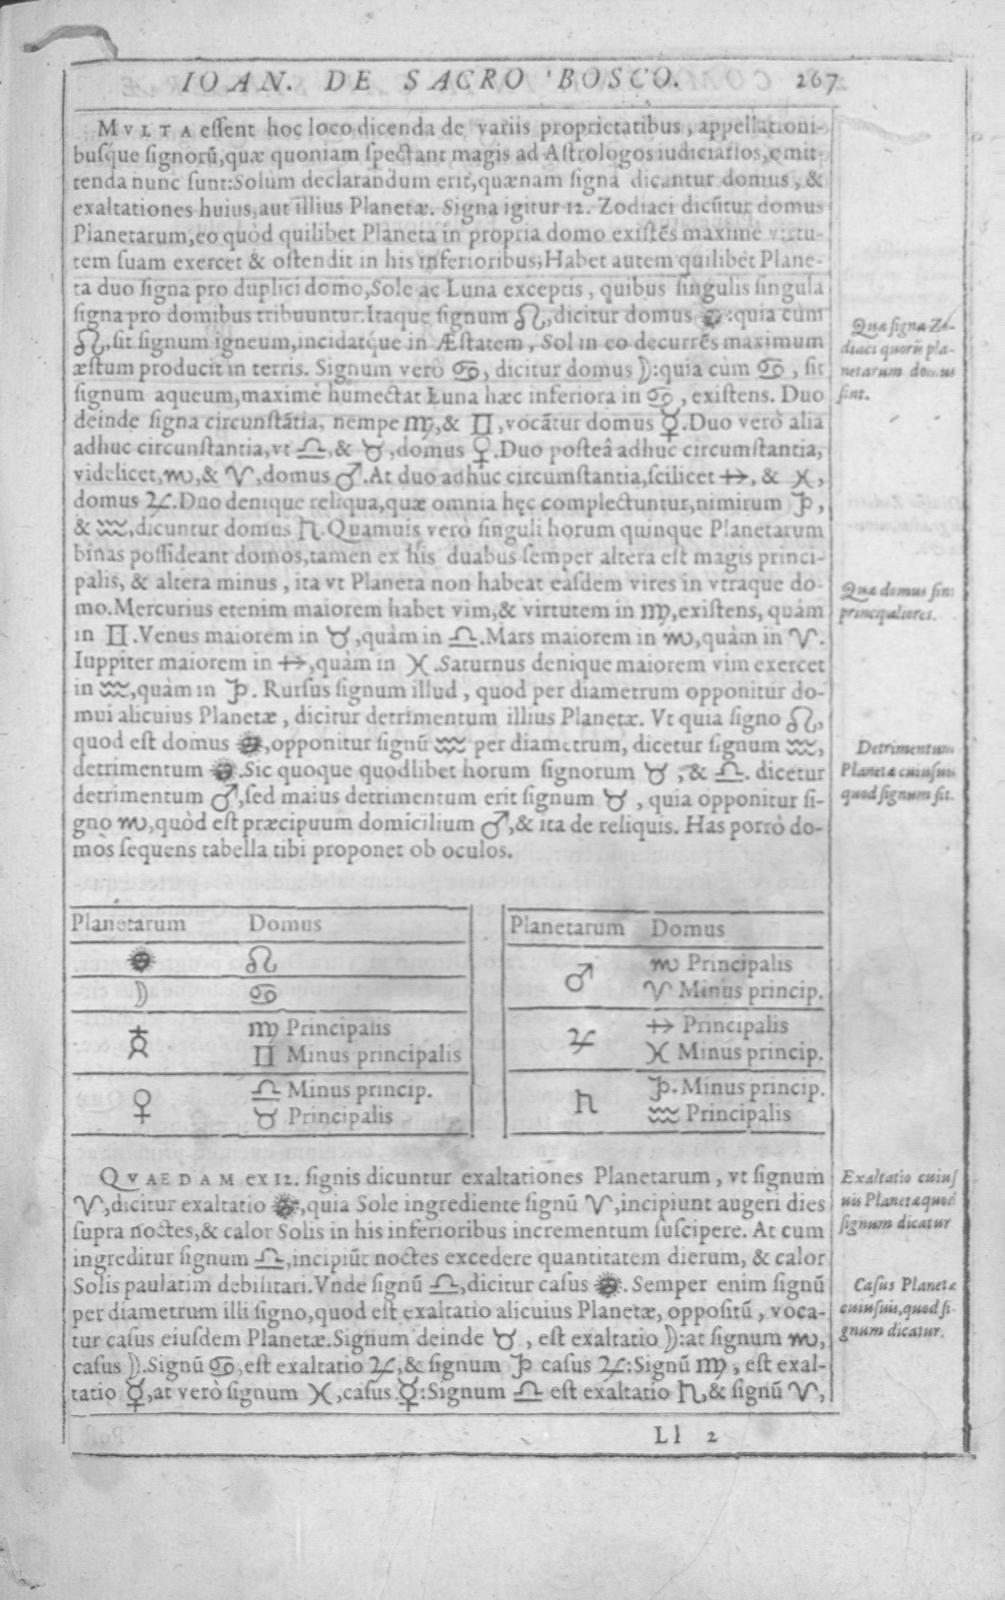 IOAN. DE SACRO BOSCO. 267
MVLTA eſſent hoc loco dicenda de variis proprietatibus, appellationi-
buſque ſignorũ, quæ quoniam ſpectant magis ad Aſtrologos iudiciarios, omit-
tenda nunc ſunt: Solùm declarandum erit, quænam ſigna dicantur domus, &
exaltationes huius, aut illius Planetæ. Signa igitur 12. Zodiaci dicũtur domus
Planetarum, eo quòd quilibet Planeta in propria domo exiſtẽs maximè virtu-
tem ſuam exercet & oſtendit in his inferioribus; Habet autem quilibet Plane-
ta duo ſigna pro duplici domo, Sole ac Luna exceptis, quibus ſingulis ſingula
ſigna pro domibus tribuuntur. Itaque ſignum ♌, dicitur domus ☉: quia cùm
♌, ſit ſignum igneum, incidatq́ue in Æſtatem, Sol in eo decurrẽs maximum
æſtum producit in terris. Signum verò ♋, dicitur domus ☽: quia cùm ♋, ſit
ſignum aqueum, maximè humectat Luna hæc inferiora in ♋, exiſtens. Duo
deinde ſigna circunſtãtia, nempe ♍, & ♊, vocãtur domus ☿. Duo verò alia
adhuc circunſtantia, vt ♎, & ♉, domus ♀. Duo poſteâ adhuc circumſtantia,
videlicet, ♏, & ♈, domus ♂. At duo adhuc circumſtantia, ſcilicet ♐, & ♓,
domus ♃. Duo denique reliqua, quæ omnia hęc complectuntur, nimirum ♑,
& ♒, dicuntur domus ♄. Quamuis verò ſinguli horum quinque Planetarum
binas poſſideant domos, tamen ex his duabus ſemper altera eſt magis princi-
palis, & altera minus, ita vt Planeta non habeat eaſdem vires in vtraque do-
mo. Mercurius etenim maiorem habet vim, & virtutem in ♍, exiſtens, quàm
in ♊. Venus maiorem in ♉, quàm in ♎. Mars maiorem in ♏, quàm in ♈.
Iuppiter maiorem in ♐, quàm in ♓. Saturnus denique maiorem vim exercet
in ♒, quàm in ♑. Rurſus ſignum illud, quod per diametrum opponitur do-
mui alicuius Planetæ, dicitur detrimentum illius Planetæ. Vt quia ſigno ♌,
quod eſt domus ☉, opponitur ſignũ ♒ per diametrum, dicetur ſignum ♒,
detrimentum ☉. Sic quoque quodlibet horum ſignorum ♉, & ♎. dicetur
detrimentum ♂, ſed maius detrimentum erit ſignum ♉, quia opponitur ſi-
gno ♏, quòd eſt præcipuum domicilium ♂, & ita de reliquis. Has porrò do-
mòs ſequens tabella tibi proponet ob oculos.
Quæ ſigna Zo-
diaci quorũ pla-
netarum domus
ſint.
Quæ domus ſint
principaliores.
Detrimentum
Planetæ cuiuſuis
quod ſignum ſit.
Planetarum Domus
☉ ♌
☽ ♋
☿ ♍ Principalis
♊ Minus principalis
♀ ♎ Minus princip.
♉ Principalis
Planetarum Domus
♂ ♏ Principalis
♈ Minus princip.
♃ ♐ Principalis
♓ Minus princip.
♄ ♑. Minus princip.
♒ Principalis
QVAEDAM ex 12. ſignis dicuntur exaltationes Planetarum, vt ſignum
♈, dicitur exaltatio ☉, quia Sole ingrediente ſignũ ♈, incipiunt augeri dies
ſupra noctes, & calor Solis in his inferioribus incrementum ſuſcipere. At cum
ingreditur ſignum ♎, incipiũt noctes excedere quantitatem dierum, & calor
Solis paulatim debilitari. Vnde ſignũ ♎, dicitur caſus ☉. Semper enim ſignũ
per diametrum illi ſigno, quod eſt exaltatio alicuius Planetæ, oppoſitũ, voca-
tur caſus eiuſdem Planetæ. Signum deinde ♉, eſt exaltatio ☽: at ſignum ♏,
caſus ☽. Signũ ♋, eſt exaltatio ♃, & ſignum ♑ caſus ♃: Signũ ♍, eſt exal-
tatio ☿, at verò ſignum ♓, caſus ☿: Signum ♎ eſt exaltatio ♄, & ſignũ ♈,
Exaltatio cuiuſ
uis Planetæ quod
ſignum dicatur
Caſus Planetæ
cuiuſuis, quod ſi-
gnum dicatur.
Ll 2